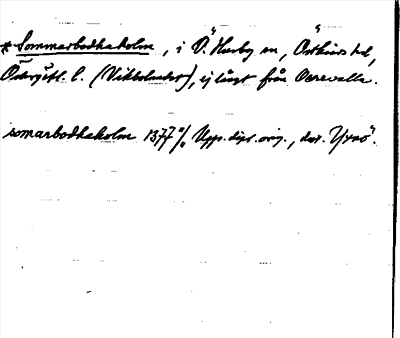 * Sommarbodhaholm, i Ö. Husby sn, Östkinds hd,
Östergötl. l. (Vikbolandet), ej långt från
somarbodhaholm 1377 Upps. dipl. orig., dat.